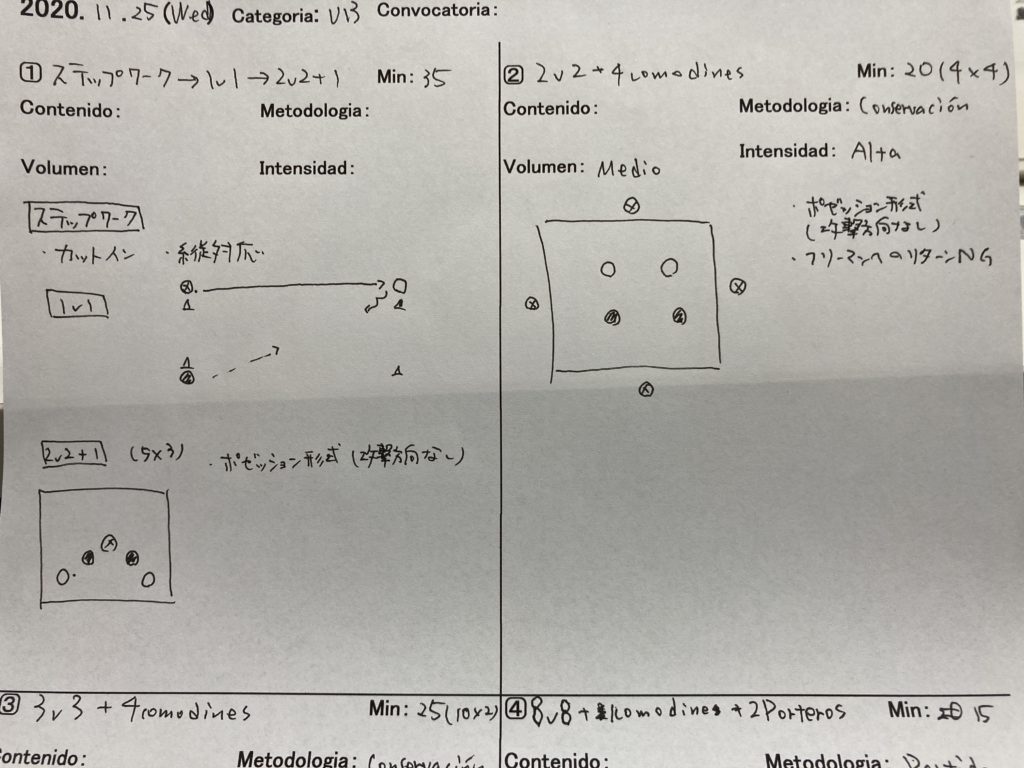 2020. 11.25(Wed) Categoria: U13 Convocatoria:
① ステップワーク→1v1→2v2+1 Min: 35
Contenido: Metodologia:
Volumen: Intensidad:
ステップワーク
・カットイン ・縦対応
1v1
2v2+1 (5×3) ・ポゼッション形式(攻撃方向なし)
② 2v2+4comodines Min: 20(4×4)
Contenido: Metodologia: Conservación
Volumen: Medio Intensidad: Alta
・ポゼッション形式
(攻撃方向なし)
・フリーマンへのリターンNG
③ 3v3+4comodines Min: 25(10×2)
Contenido: Metodologia: Conservación
④ 8v8+1comodines+2Porteros Min: 15
Contenido: Metodologia: Partido